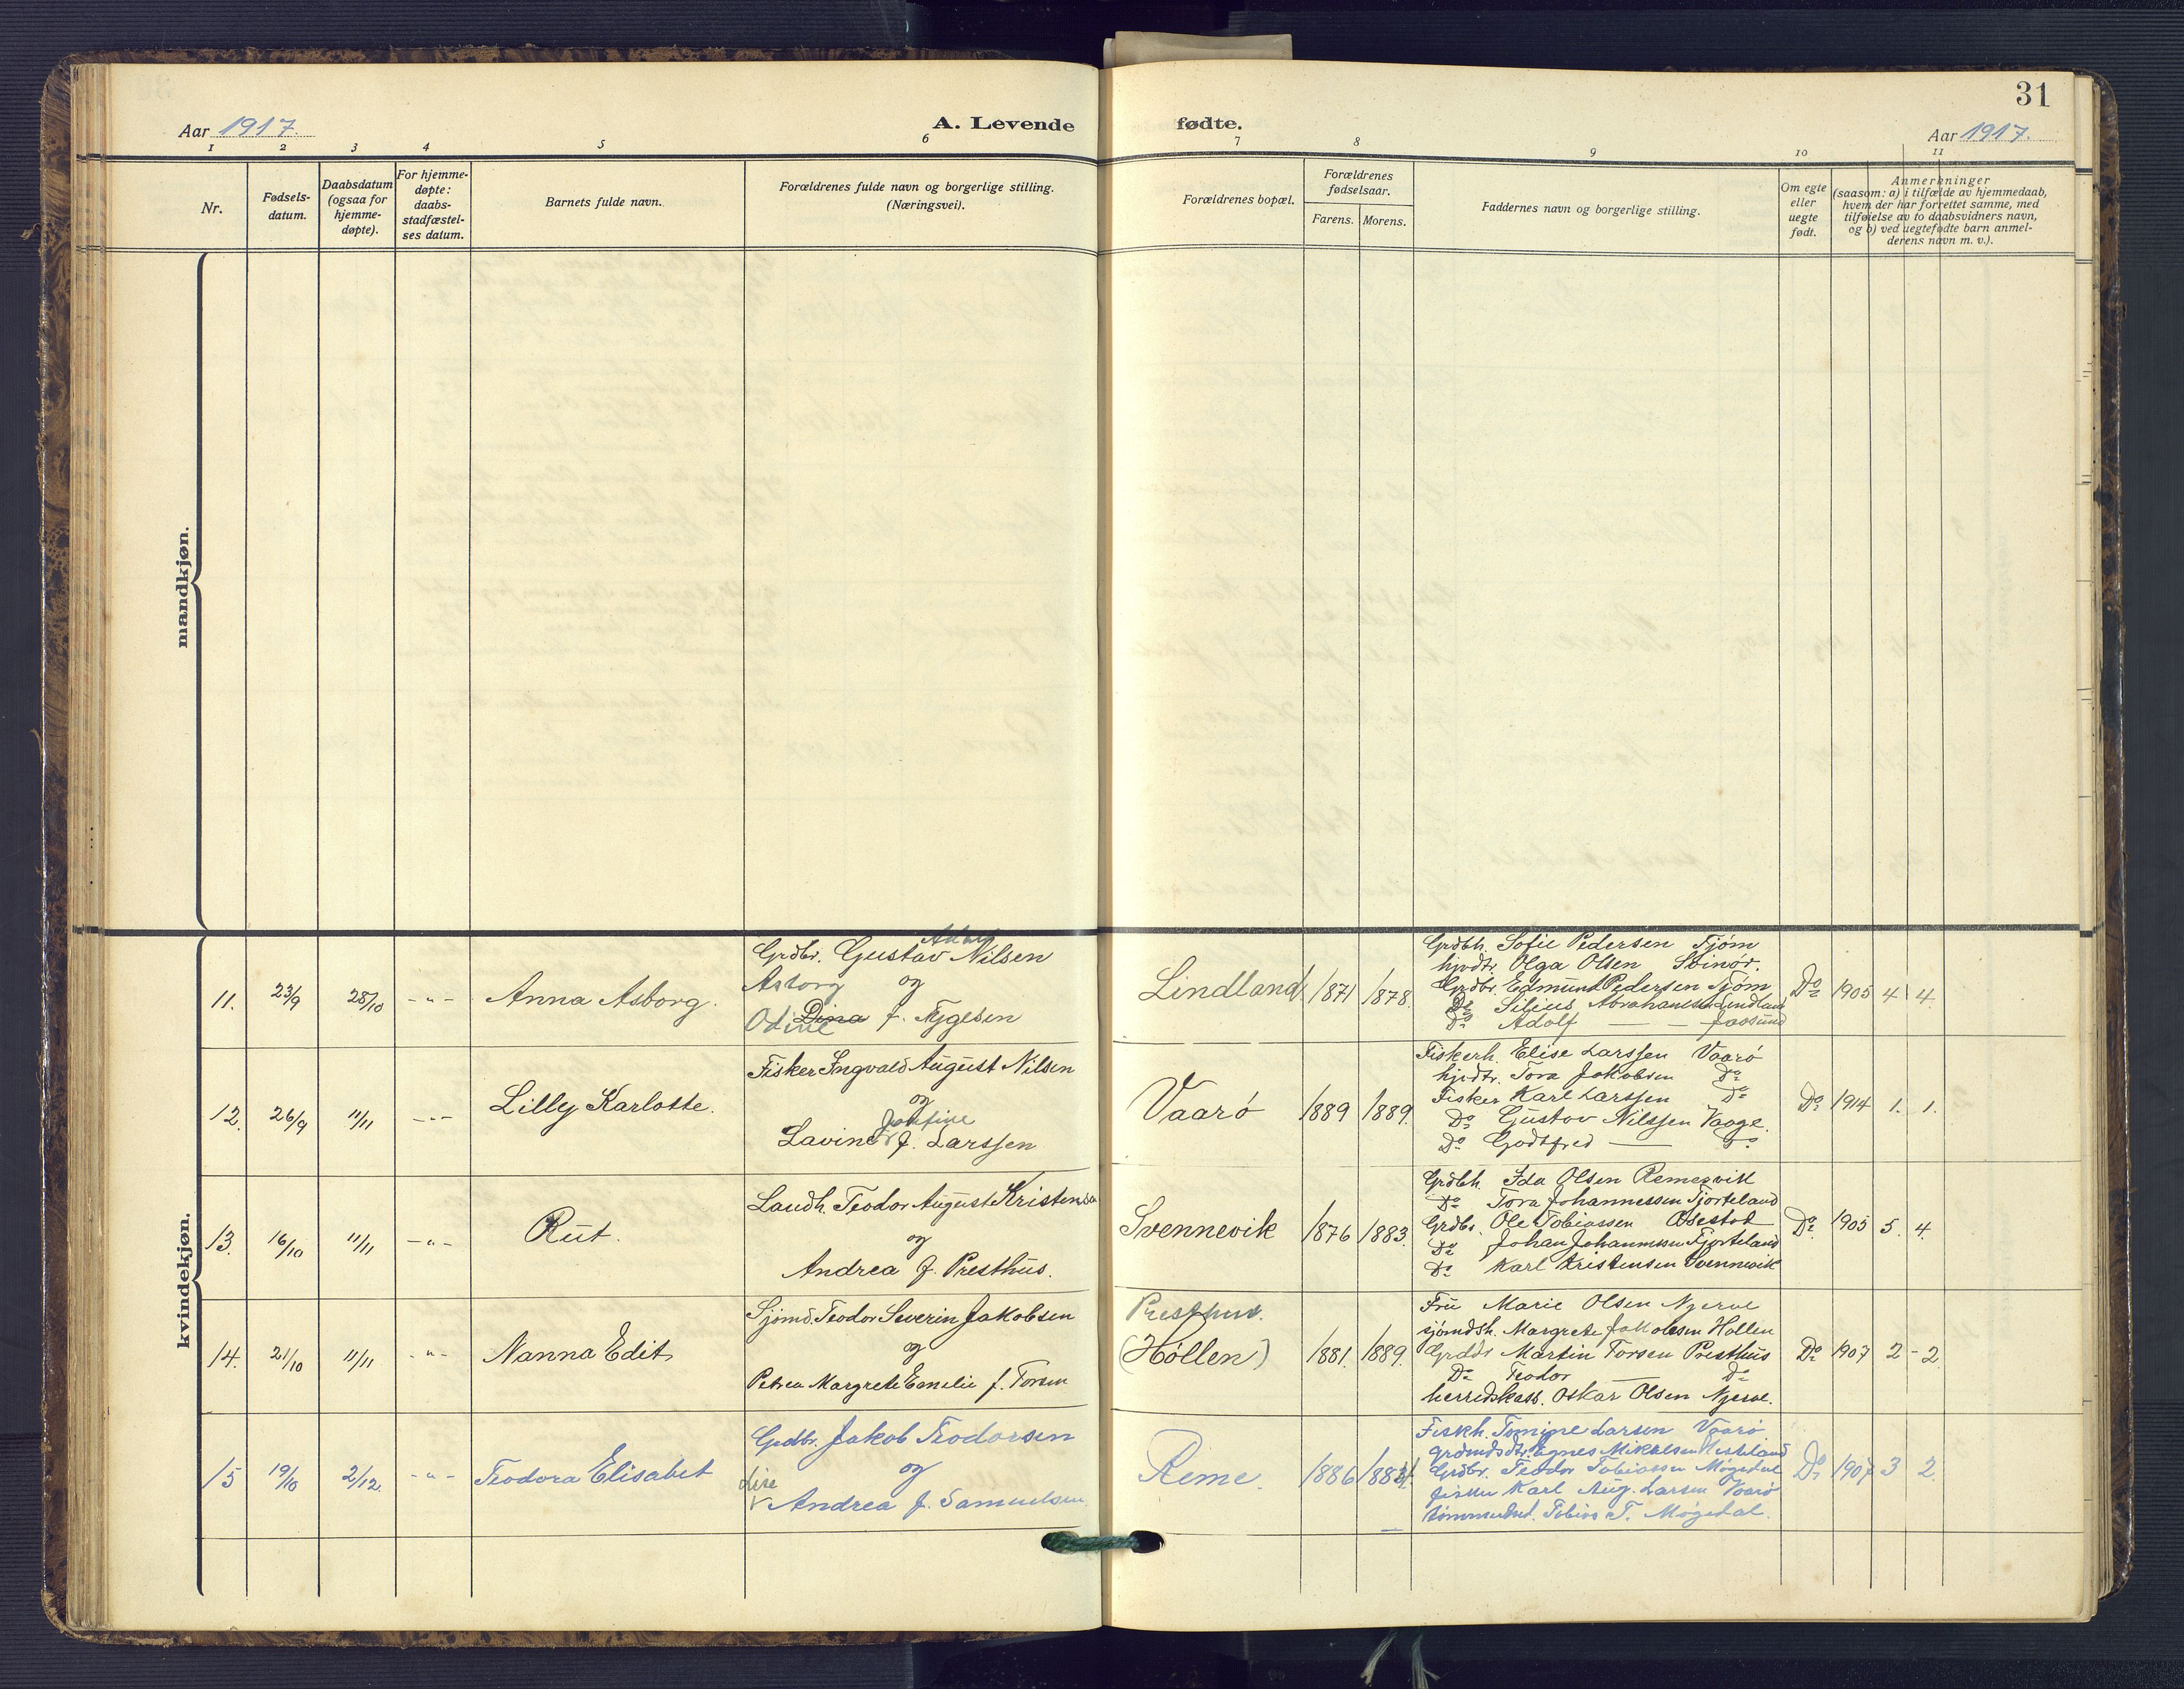 31
Aar 1917.
A. Levende fødte.
Aar 1917.
1 2 3 4 5 6 7 8 9 10 11
Nr.
Fødsels-
datum.
Daabsdatum
(ogsaa for
hjemme-
døpte).
For hjemme-
døpte:
daabs-
stadfæstel-
ses datum.
Barnets fulde navn.
Forældrenes fulde navn og borgerlige stilling.
(Næringsvei).
Forældrenes bopæl.
Forældrenes
fødselsaar.
Farens. Morens.
Faddernes navn og borgerlige stilling.
Om egte
eller
uegte
født.
Anmerkninger
(saasom: a) i tilfælde av hjemmedaab,
hvem der har forrettet samme, med
tilføielse av to daabsvidners navn,
og b) ved uegtefødte barn anmel-
derens navn m. v.).
mandkjøn.
kvindekjøn.
11. 23/9 28/10 -"- Anna Asborg.
Grdbr. Gustav Nilsen
Asborg og
Odine Dina f. Tygesen
Lindland 1871 1878
Grdbh. Sofie Pedersen Tjøm
hjvdtr. Olga Olsen Svinør.
Grdbr. Edmund Pedersen Tjøm
Do Silius Abrahamsen Lindland
Do Adolf — — Jaasund
Do 1905 4 4.
12. 26/9 11/11 -"- Lilly Karlotte.
Fisker Ingvald August Nilsen
og
Josefine
Lavine f. Larssen
Vaarø 1889 1889.
Fiskerh. Elise Larssen Vaarø
hjvdtr. Tora Jakobsen Do
Fisker Karl Larssen Do
Do Gustav Nilssen Vaage.
Do Godtfred — Do
Do 1914 1. 1.
13. 16/10 11/11 -"- Rut.
Landh. Teodor August Kristensen
og
Andrea f. Presthus.
Svennevik 1876 1883.
Grdbh. Ida Olsen Remesvik
Do Tora Johannessen Tjorteland
Grdbr. Ole Tobiassen Osestad
Do Johan Johannessen Tjorteland
Do Karl Kristensen Svennevik
Do 1905 5. 4.
14. 21/10 11/11 -"- Nanna Edit
Sjømd. Teodor Severin Jakobsen
og
Petrea Margrete Emelie f. Torsen
Presthus.
(Høllen) 1881. 1889.
Fru Marie Olsen Njerve
sjømdsh. Margrete Jakobsen Høllen
Grdbr Martin Torsen Presthus
Do Teodor — Do
herredskass. Oskar Olsen Njerve.
Do 1907 2 - 2
15 19/10 2/12. -"- Teodora Elisabet
Grdbr. Jakob Teodorsen
og
Lise
Andrea f. Samuelsen
Reme. 1886
Fiskh. Tomine Larsen Vaarø
Grdmdsdtr. Agnes Mikalsen
Grdbr. Teodor Tobiassen Møgedal
fisker Karl Aug. Larsen Vaarø
tømmermd. Tobias T. Møgedal.
Do 1907 3 2.